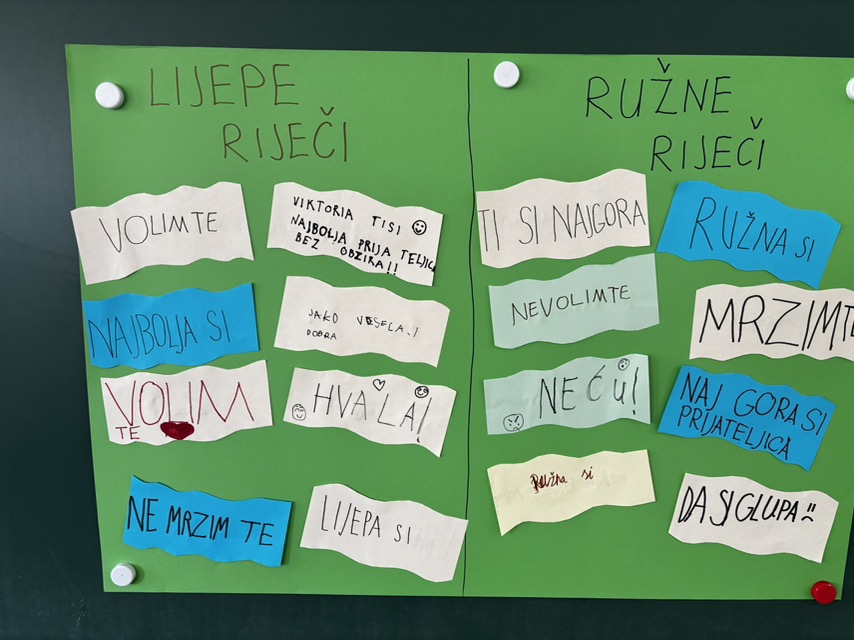 LIJEPE
RIJEČI
VOLIMTE
VIKTORIA TISI
NAJBOLJA PRIJA TELJICA
BEZ OBZIRA!!
NAJBOLJA SI
JAKO VESELA.I
DOBRA
VOLIM
TE
HVALA!
NE MRZIM TE
LIJEPA SI
RUŽNE
RIJEČI
TI SI NAJGORA
RUŽNA SI
NEVOLIMTE
MRZIMTE
NEĆU!
NAJ GORA SI
PRIJATELJICA
Ružna si
DA SI GLUPA